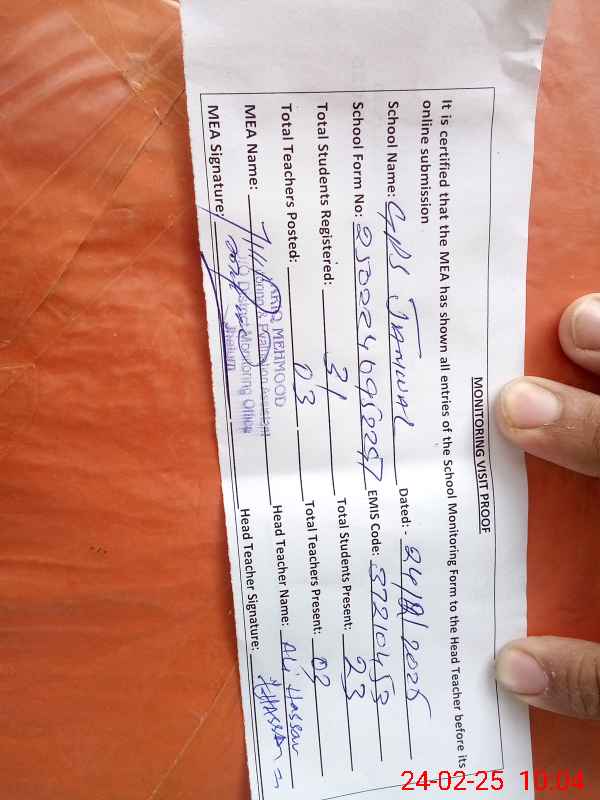 MONITORING VISIT PROOF
It is certified that the MEA has shown all entries of the School Monitoring Form to the Head Teacher before its
online submission
School Name: GPS JAMWAL Dated: - 24/2/2025
School Form No: EMIS Code: 37210453
Total Students Registered: 31 Total Students Present: 23
Total Teachers Posted: 03 Total Teachers Present: 03
MEA Name: Head Teacher Name: Ali Hassan
MEHMOOD
Monitoring & Evaluation Assistant
O/O District Monitoring Officer
Jhelum
MEA Signature: Head Teacher Signature: AHASSAN
24-02-25 10:04